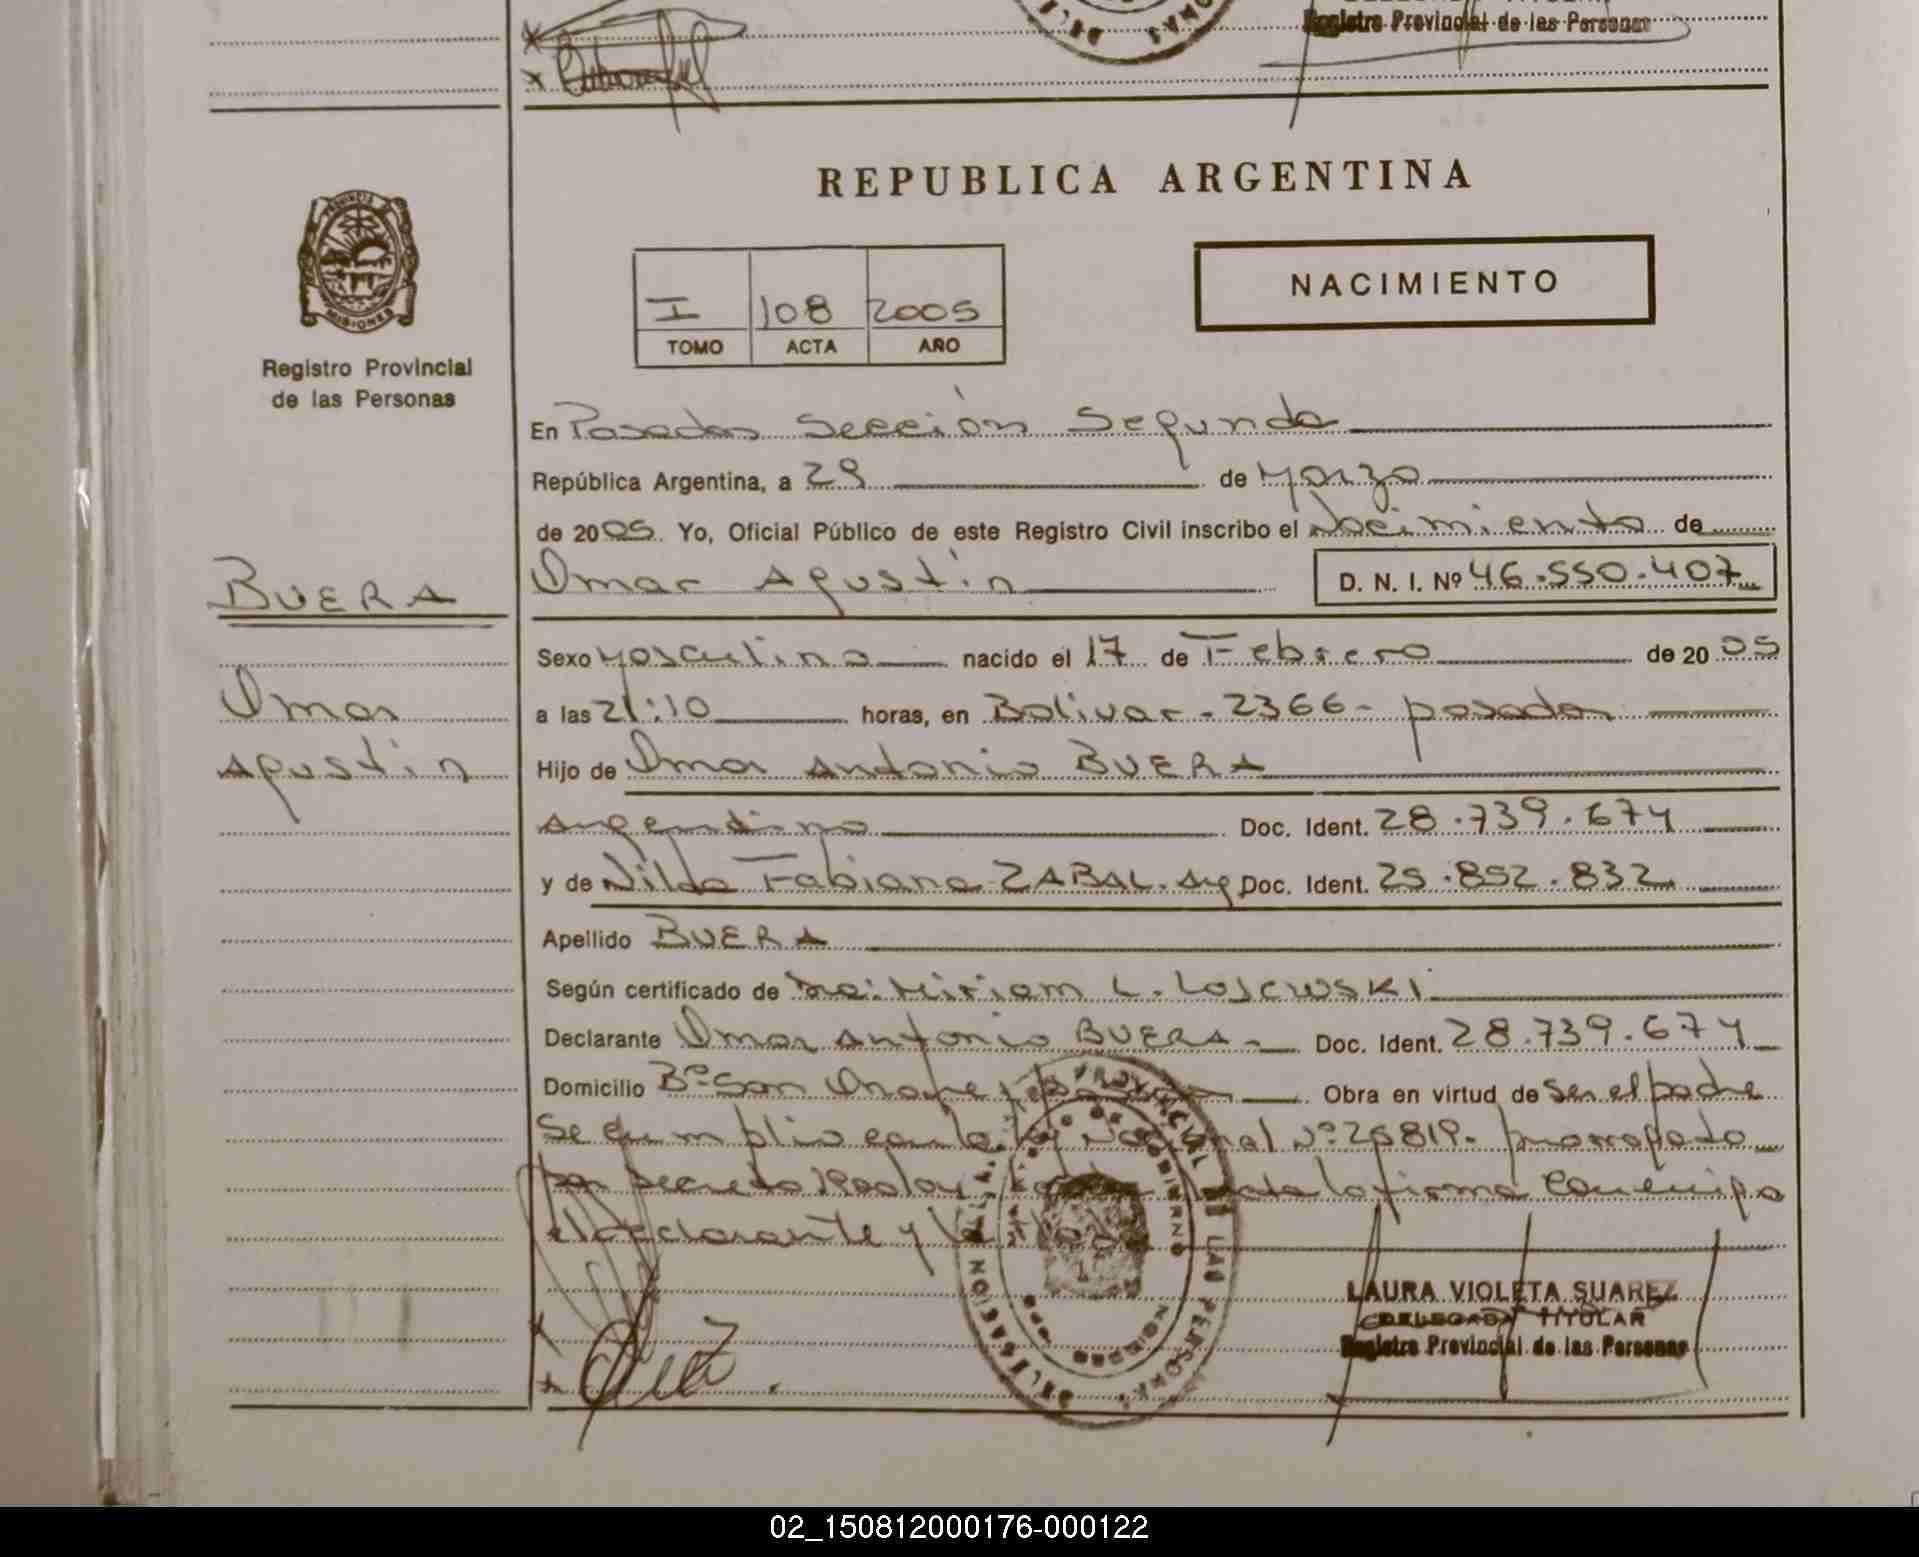 Registro Provincial de las Personas
REPUBLICA ARGENTINA
NACIMIENTO
I 108 2005
TOMO ACTA AÑO
MISIONES
Registro Provincial
de las Personas
En Posadas Sección Segunda
República Argentina, a 29 de Marzo
de 2005. Yo, Oficial Público de este Registro Civil inscribo el Nacimiento de
BUERA
Omar Agustín
D. N. I. Nº 46.550.407
Sexo Masculino nacido el 17 de Febrero de 2005
Omar
a las 21:10 horas, en Bolivar - 2366 - posadas
Agustín
Hijo de Omar Antonio BUERA
Argentino Doc. Ident. 28.739.674
y de Nilda Fabiana ZABAL. Arg Doc. Ident. 25.852.832
Apellido BUERA
Según certificado de Miriam L. Losewski
Declarante Omar Antonio BUERA - Doc. Ident. 28.739.674
Domicilio Bº San Onofre Obra en virtud de Ser el padre
Se cumplio con la ley Nacional Nº 25819. prorrogado
por Decreto la firma Conmigo
el declarante y
LAURA VIOLETA SUAREZ
DELEGADA TITULAR
Registro Provincial de las Personas
02_150812000176-000122